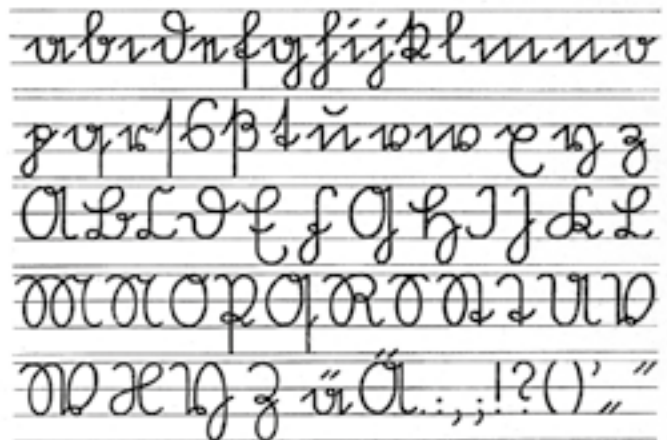 a b c d e f g h i j k l m n o
p q r ſ s ß t ŭ v w x y z
A B C D E F G H I J K L
M N O P Q R S St T U V
W X Y Z ä Ä . : , ; ! ? ( ) ’ „ “